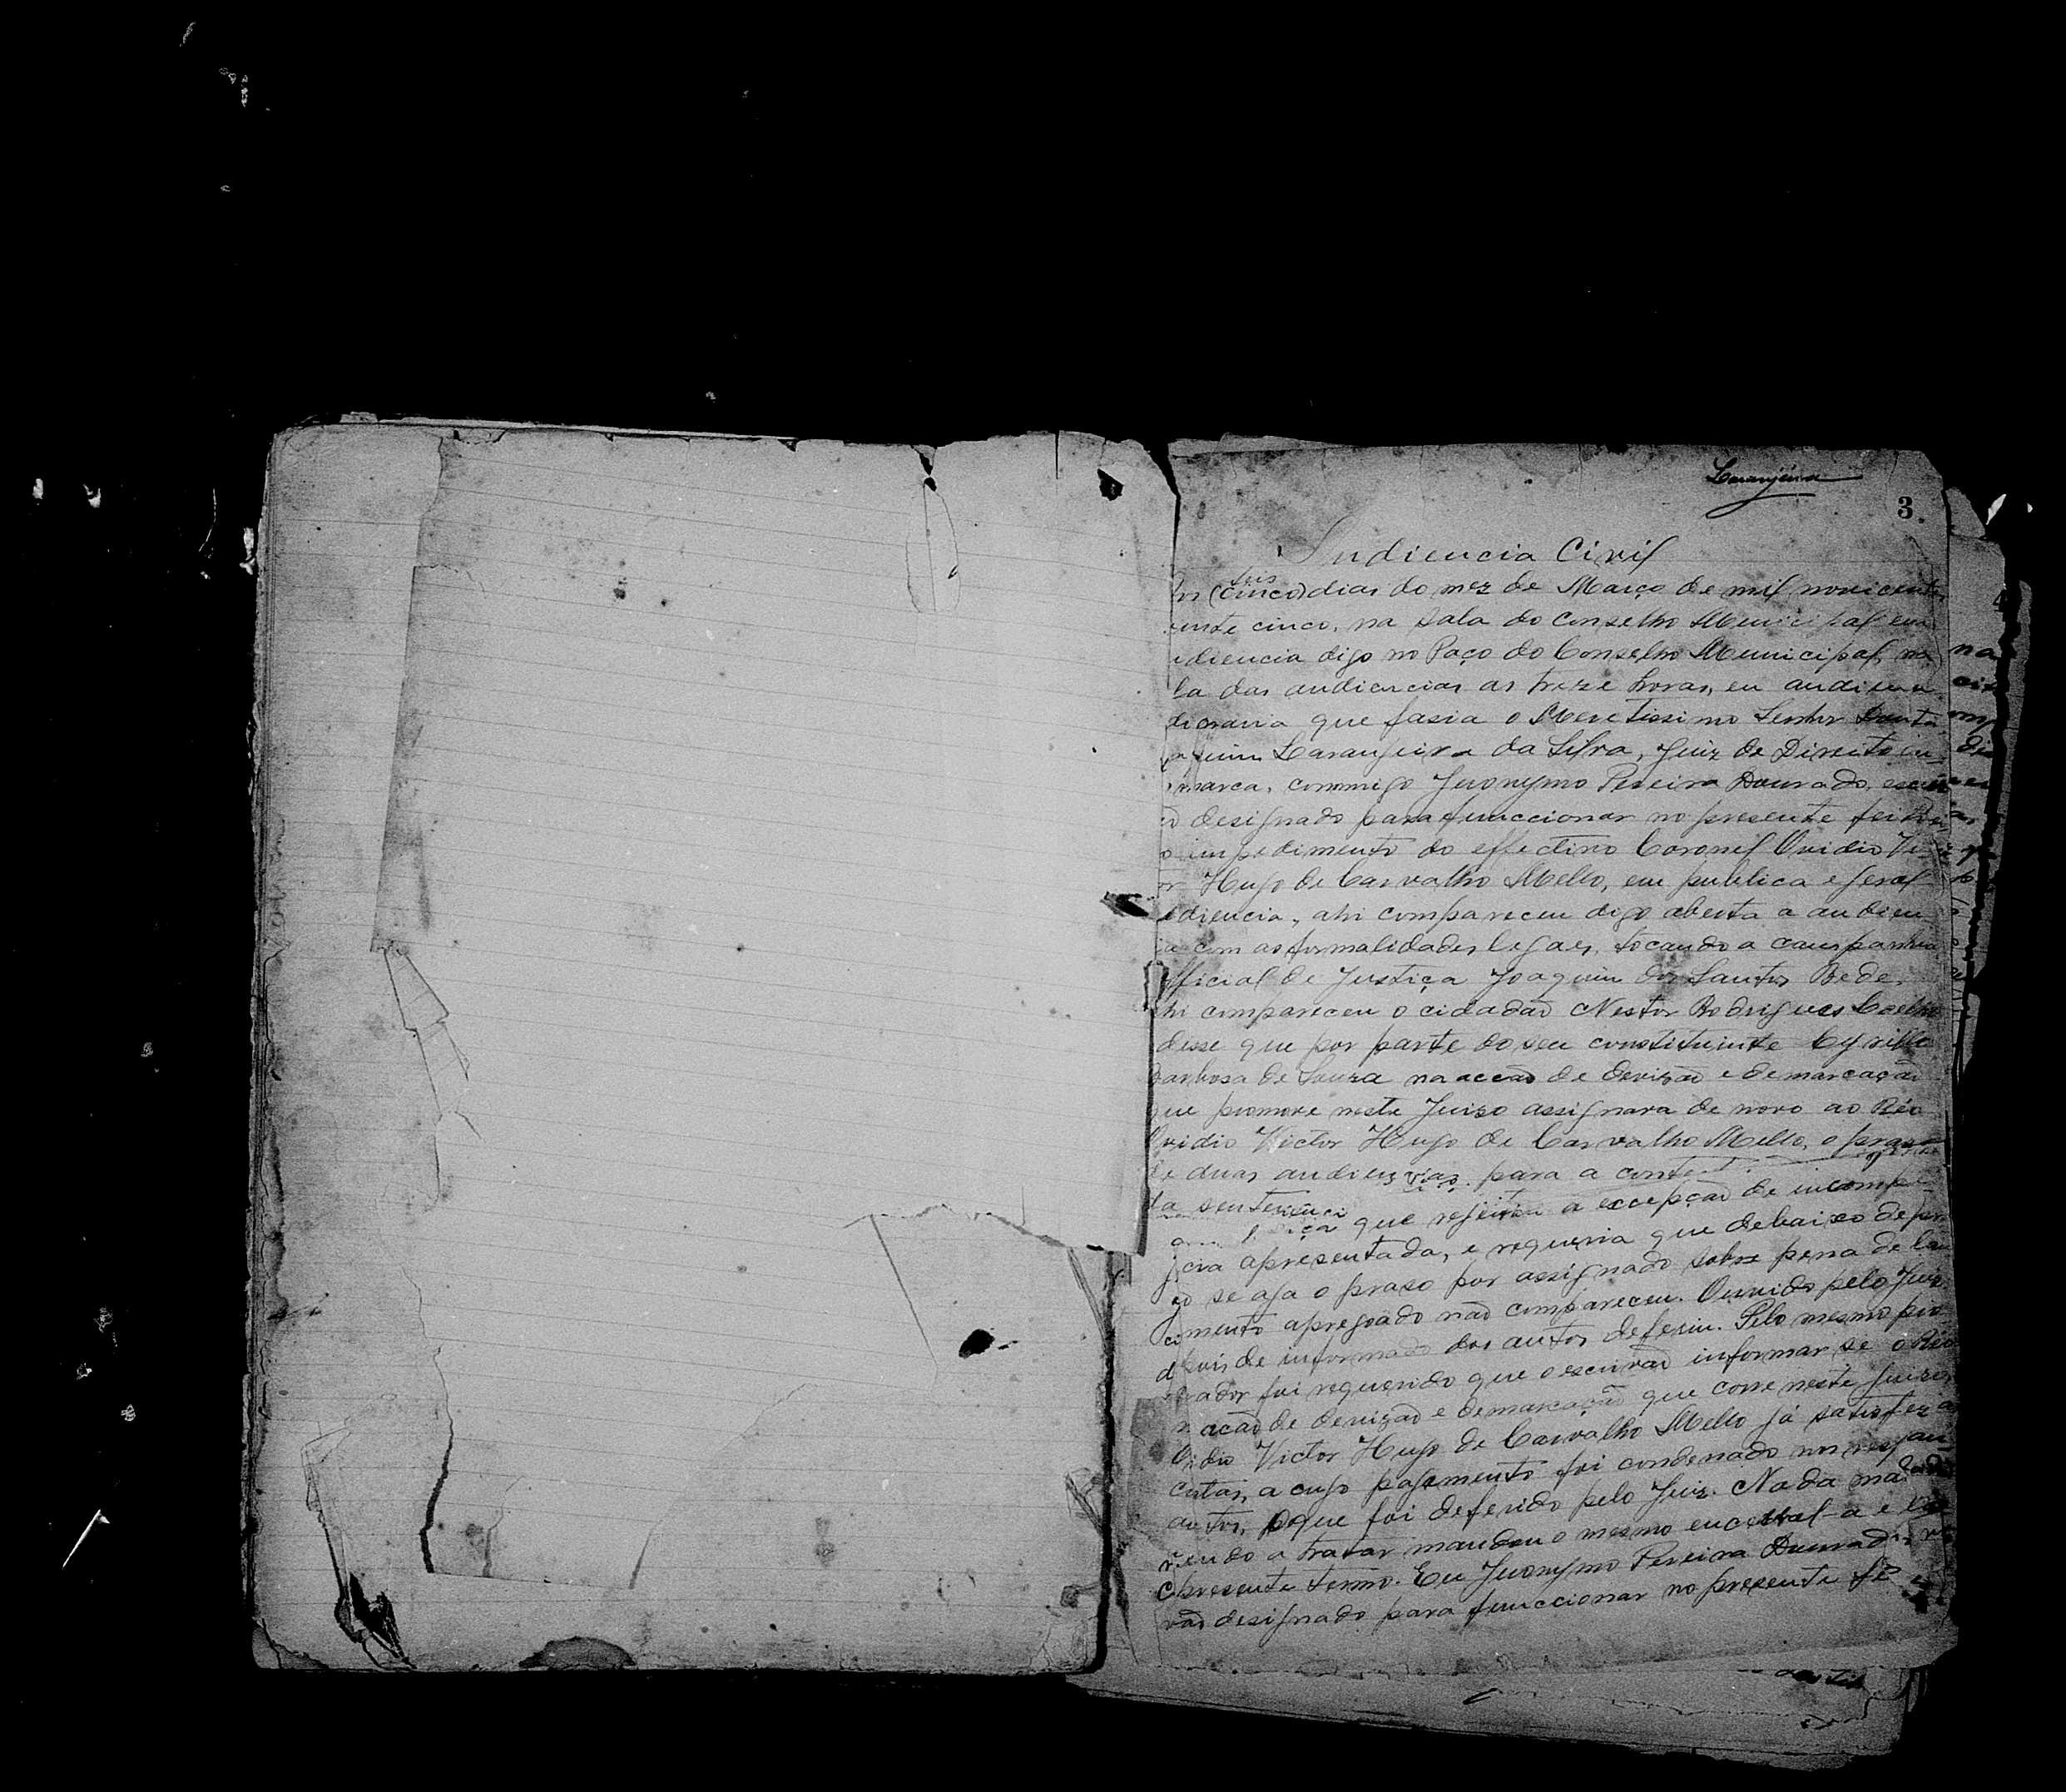 Laranjeira
3
Audiencia Civil
seis
(cinco) dias do mez de Março de mil novicentos
cinco, na sala do Conselho Municipal em
diencia digo no Paço do Conselho Municipal, na
la das audiencias as treze horas, em audien
dinaria que fasia o Meretissimo Senhor Douto
Laranjeira da Silva, Juiz de Direito
marca, commigo Jeronymo Pereira Dourado, escri
designado para funccionar no presente feito
impedimento do effectivo Coronel Ovidio Vi
or Hugo de Carvalho Mello, em publica e geral
diencia, ahi compareceu digo aberta a audien
com as formalidades legaes, tocando a campanhia
fficial de Justiça Joaquim dos Santos Bede,
hi compareceu o cidadão Nestor Rodrigues Coelho
disse que por parte do seu constituinte Cyrillo
Barbosa de Souza na accão de devizão e demarcação
que promove neste Juiso assignava de novo ao Réo
Ovidio Victor Hugo de Carvalho Mello, o praso
de duas audiencias para a
da sentença
que rejeitou a excepção de incompe
cia apresentada, e requeria que debaixo de pre
gão se aja o praso por assignado sobre pena de lan
cimento apregoado não compareceu. Ouvido pelo Juiz
depois de informado dos autos deferiu. Pelo mesmo pro
curador foi requerido que o escrivão informar se o Réo
n acão de devizão e demarcação que corre neste Juiso,
Ovidio Victor Hugo de Carvalho Mello já satisfez a
custas, a cujo pagamento foi condenado nos
autos, o que foi deferido pelo Juiz. Nada mais
vendo a tratar mandou o mesmo encerral-a e
o presente termo. Eu Jeronymo Pereira Dourado,
vão designado para funccionar no presente fe